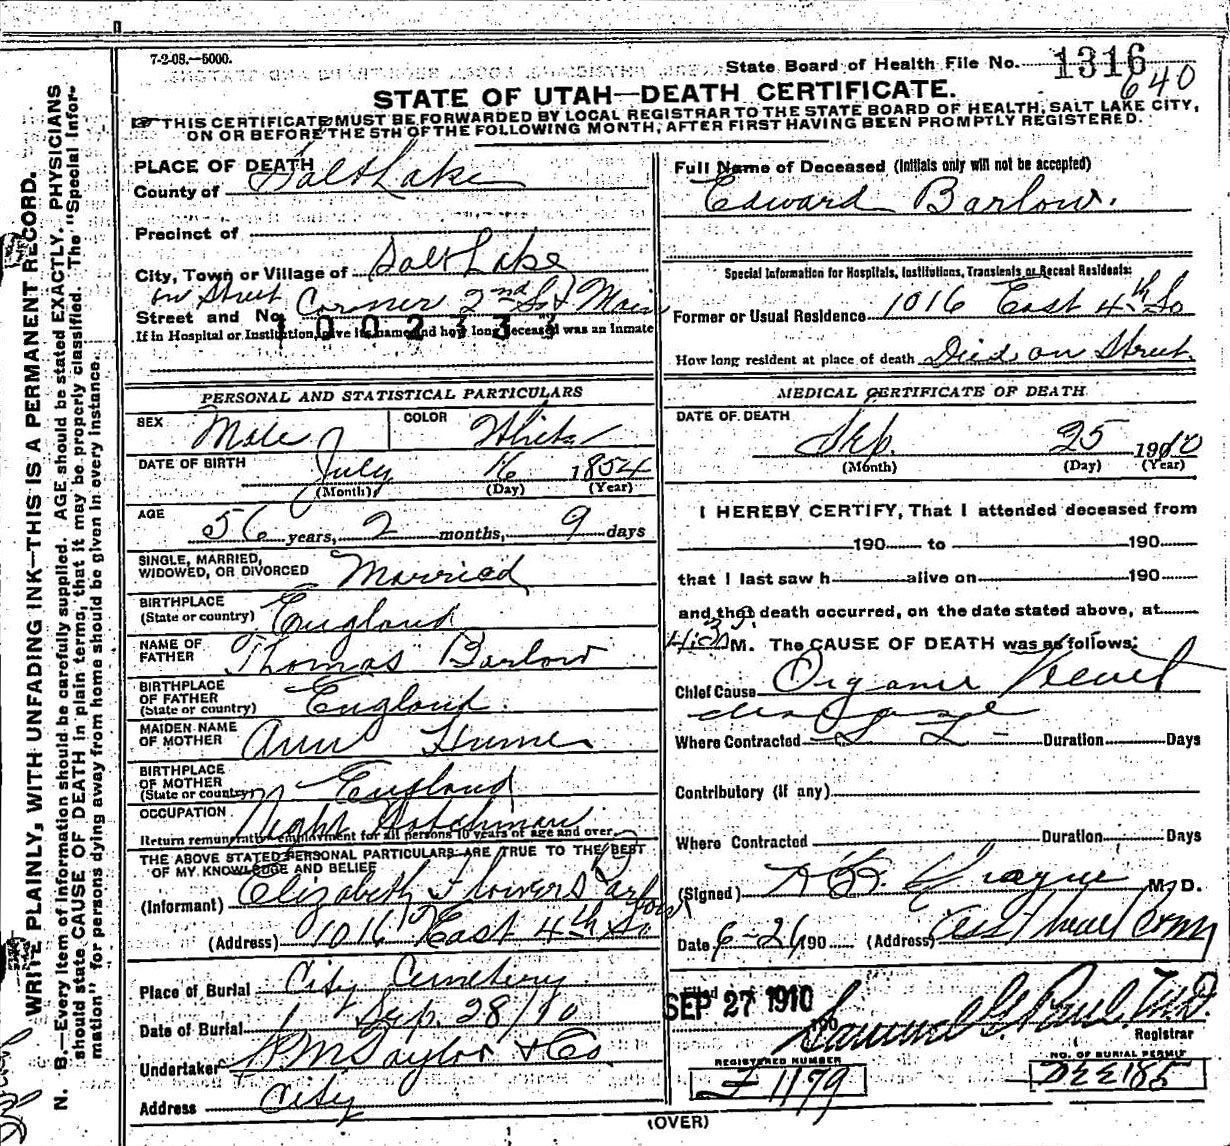 7-2-08.—5000.
State Board of Health File No. 1316
640
STATE OF UTAH—DEATH CERTIFICATE.
THIS CERTIFICATE MUST BE FORWARDED BY LOCAL REGISTRAR TO THE STATE BOARD OF HEALTH, SALT LAKE CITY,
ON OR BEFORE THE 5TH OF THE FOLLOWING MONTH, AFTER FIRST HAVING BEEN PROMPTLY REGISTERED.
WRITE PLAINLY, WITH UNFADING INK—THIS IS A PERMANENT RECORD.
N. B.—Every item of information should be carefully supplied. AGE should be stated EXACTLY. PHYSICIANS
should state CAUSE OF DEATH in plain terms, that it may be properly classified. The "Special Infor-
mation" for persons dying away from home should be given in every instance.
PLACE OF DEATH
County of Salt Lake
Precinct of
City, Town or Village of Salt Lake
on Street
Street and No. Corner 2nd So & Main
100233
If in Hospital or Institution, give its name and how long deceased was an inmate
PERSONAL AND STATISTICAL PARTICULARS
SEX Male COLOR White
DATE OF BIRTH July 16 1854
(Month) (Day) (Year)
AGE 56 years, 2 months, 9 days
SINGLE, MARRIED,
WIDOWED, OR DIVORCED Married
BIRTHPLACE
(State or country) England
NAME OF
FATHER Thomas Barlow
BIRTHPLACE
OF FATHER
(State or country) England
MAIDEN NAME
OF MOTHER Ann
BIRTHPLACE
OF MOTHER
(State or country) England
OCCUPATION Night Watchman
Return remunerative employment for all persons 10 years of age and over
THE ABOVE STATED PERSONAL PARTICULARS ARE TRUE TO THE BEST
OF MY KNOWLEDGE AND BELIEF
(Informant) Elizabeth Flowers Barlow
(Address) 1016 East 4th So
Place of Burial City Cemetery
Date of Burial Sep. 28/10
Undertaker Taylor & Co
Address City
Full Name of Deceased (Initials only will not be accepted)
Edward Barlow.
Special Information for Hospitals, Institutions, Transients or Recent Residents:
Former or Usual Residence 1016 East 4th So
How long resident at place of death Died on Street
MEDICAL CERTIFICATE OF DEATH
DATE OF DEATH
Sep. 25 1910
(Month) (Day) (Year)
I HEREBY CERTIFY, That I attended deceased from
190 to 190
that I last saw h alive on 190
and that death occurred, on the date stated above, at
4:30 M. The CAUSE OF DEATH was as follows:
Chief Cause Organic Heart
disease
Where Contracted Duration Days
Contributory (if any)
Where Contracted Duration Days
(Signed) M. D.
Date 190 (Address)
Filed
SEP 27 1910
190
Samuel G. Paul, M.D.
Registrar
REGISTERED NUMBER
F 1179
NO. OF BURIAL PERMIT
(OVER)